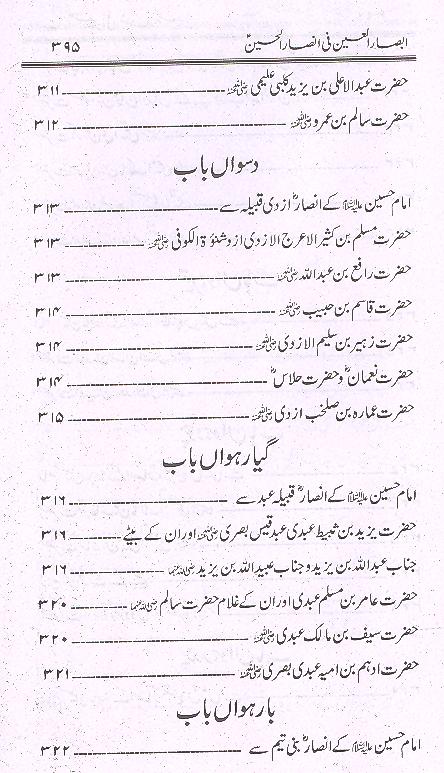 ابصار العین فی انصار الحسینؑ ۳۹۵
حضرت عبدالاعلیٰ بن یزید کلبی علیمی رضی اللہ عنہ ۳۱۱
حضرت سالم بن عمرو رضی اللہ عنہ ۳۱۲
دسواں باب
امام حسین علیہ السلام کے انصارؓ ازدی قبیلہ سے ۳۱۳
حضرت مسلم بن کثیر الاعرج الازدی ازد شنوۃ الکوفی رضی اللہ عنہ ۳۱۳
حضرت رافع بن عبداللہ رضی اللہ عنہ ۳۱۳
حضرت قاسم بن حبیب رضی اللہ عنہ ۳۱۴
حضرت زہیر بن سلیم الازدی رضی اللہ عنہ ۳۱۴
حضرت نعمانؓ و حضرت حلاسؓ ۳۱۴
حضرت عمارہ بن صلخب ازدی رضی اللہ عنہ ۳۱۵
گیارہواں باب
امام حسین علیہ السلام کے انصارؓ قبیلہ عبد سے ۳۱۶
حضرت یزید بن ثبیط عبدی عبد قیس بصری رضی اللہ عنہ اور ان کے بیٹے ۳۱۶
جناب عبداللہ بن یزید و جناب عبیداللہ بن یزید رضی اللہ عنہما ۳۱۶
حضرت عامر بن مسلم عبدی اور ان کے غلام حضرت سالم رضی اللہ عنہما ۳۲۰
حضرت سیف بن مالک عبدی رضی اللہ عنہ ۳۲۰
حضرت ادہم بن امیہ عبدی بصری رضی اللہ عنہ ۳۲۱
بارہواں باب
امام حسین علیہ السلام کے انصارؓ بنی تیم سے ۳۲۲